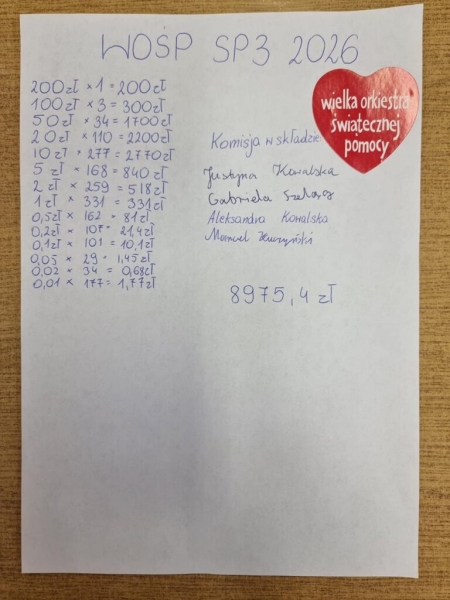 WOŚP SP3 2026
wielka orkiestra
świątecznej
pomocy
200zł × 1 = 200zł
100zł × 3 = 300zł
50zł × 34 = 1700zł
20zł × 110 = 2200zł
10zł × 277 = 2770zł
5 zł × 168 = 840zł
2 zł × 259 = 518zł
1zł × 331 = 331zł
0,5zł × 162 = 81zł
0,2zł × 107 = 21,4zł
0,1zł × 101 = 10,1zł
0,05 × 29 = 1,45zł
0,02 × 34 = 0,68zł
0,01 × 177 = 1,77zł
Komisja w składzie
Justyna Kowalska
Gabriela
Aleksandra Kowalska
Marcel
8975,4 zł